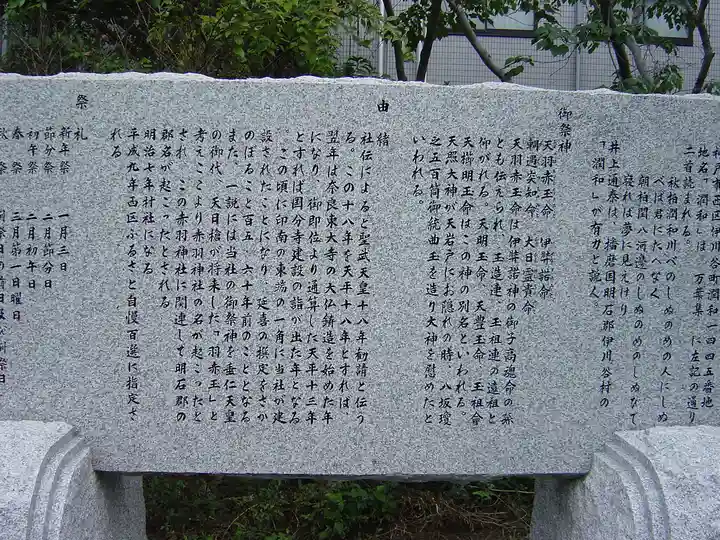 神戸市西区伊川谷町潤和一四四五番地
地名「潤和」は、万葉集　に左記の通り
二首読まれる。
秋柏潤和川べのしぬのめの人にしぬ
べば君にたへなく
朝柏閏八河邊のしぬのめのしぬびて
寝れば夢に見えけり
井上通泰は、播磨国明石郡伊川谷村の
「潤和」が有力と説く。
御祭神
天羽赤玉命　伊弉諾命
軻遇突知命　大日霊貴命
天羽赤玉命は伊弉諾神の御子高魂命の孫
とも伝えられ、玉造連、玉祖連の遠祖と
仰がれる。天明玉命、天豊玉命、玉祖命
天櫛明玉命はこの神の別名といわれる。
天照大神が天岩戸にお隠れの時、八坂瓊
之五百筒御統曲玉を造り大神を慰めたと
いわれる。
由　結
社伝によると聖武天皇十八年勧請と伝う
る。この十八年を天平十八年とすれば、
翌年は奈良東大寺の大仏鋳造を始めた年
になり、御即位より通算した天平十三年
とすれば国分寺建設の詣が出た年となる
。この頃に印南の東端の一角に当社が建
設されたことになり、延喜の撰定をさか
のぼること百五、六十年前のこととなる
また、一説には当社の御祭神を垂仁天皇
の御代、天日槍が将来した「羽赤玉」と
考えことより赤羽神社の名が起こったと
され、この赤羽神社に関連して明石郡の
郡名が起こったとされる
明治七年村社になる
平成九年西区ふるさと自慢百選に指定さ
れる
祭　礼
新年祭　一月三日
節分祭　二月節分日
初午祭　二月初午日
春　祭　三月第一日曜日